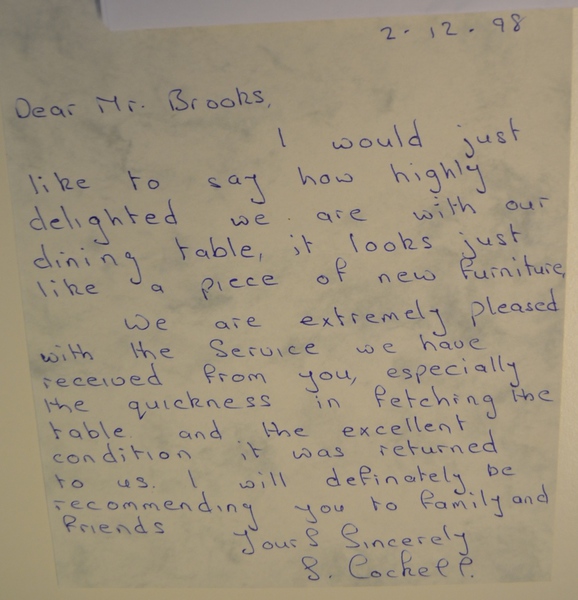 2.12.98
Dear Mr. Brooks,
I would just
like to say how highly
delighted we are with our
dining table, it looks just
like a piece of new furniture,
We are extremely pleased
with the Service we have
received from you, especially
the quickness in fetching the
table. and the excellent
condition it was returned
to us. I will definately be
recommending you to family and
friends
Yours Sincerely
S. Cockell.